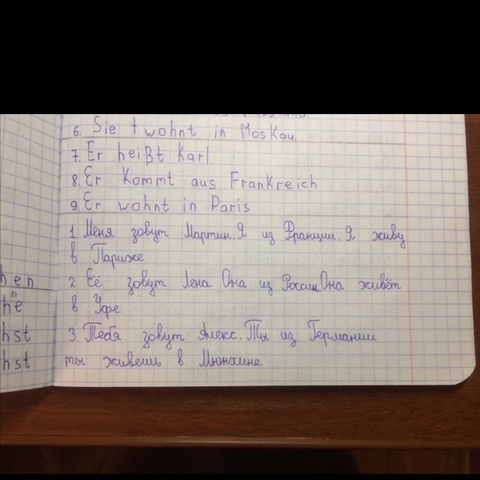 6. Sie wohnt in Moskau.
7. Er heißt Karl.
8. Er kommt aus Frankreich
9. Er wohnt in Paris
1. Меня зовут Мартин. Я из Франции. Я живу
в Париже
2. Её зовут Лена Она из России Она живёт
в Уфе
3. Тебя зовут Алекс. Ты из Германии
ты живешь в Мюнхине.
hen
he
n
hst
hst